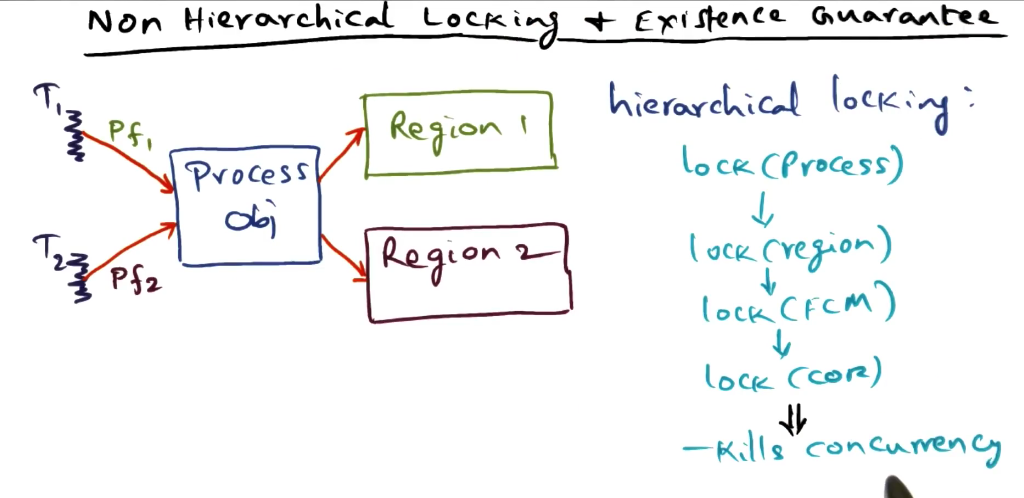 Non Hierarchical Locking + Existence Guarantee
T1
Pf1
Process
Obj
T2
Pf2
Region 1
Region 2
hierarchical locking:
lock (Process)
↓
lock (region)
↓
lock (FCM)
↓
lock (COR)
⇓
- Kills concurrency